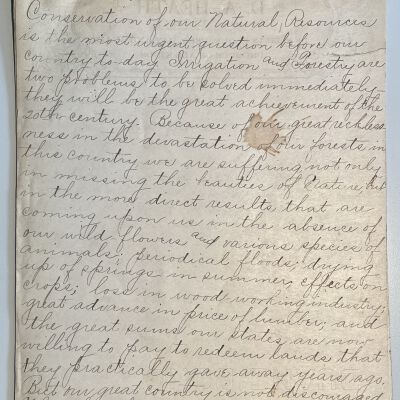 Conservation of our Natural Resources
is the most urgent question before our
country to-day. Irrigation and Forestry are
two problems to be solved immediately
they will be the great achievement of the
20th century. Because of our great reckless-
ness in the devastation of our forests in
this country we are suffering not only
in missing the beauties of Nature, but
in the more direct results that are
coming upon us in the absence of
our wild flowers and various species of
animals; periodical floods; drying
up of springs in summer, effects on
crops; loss in wood working industry;
great advance in price of lumber; and
the great sums our states are now
willing to pay to redeem lands that
they practically gave away years ago.
But our great country is not discouraged